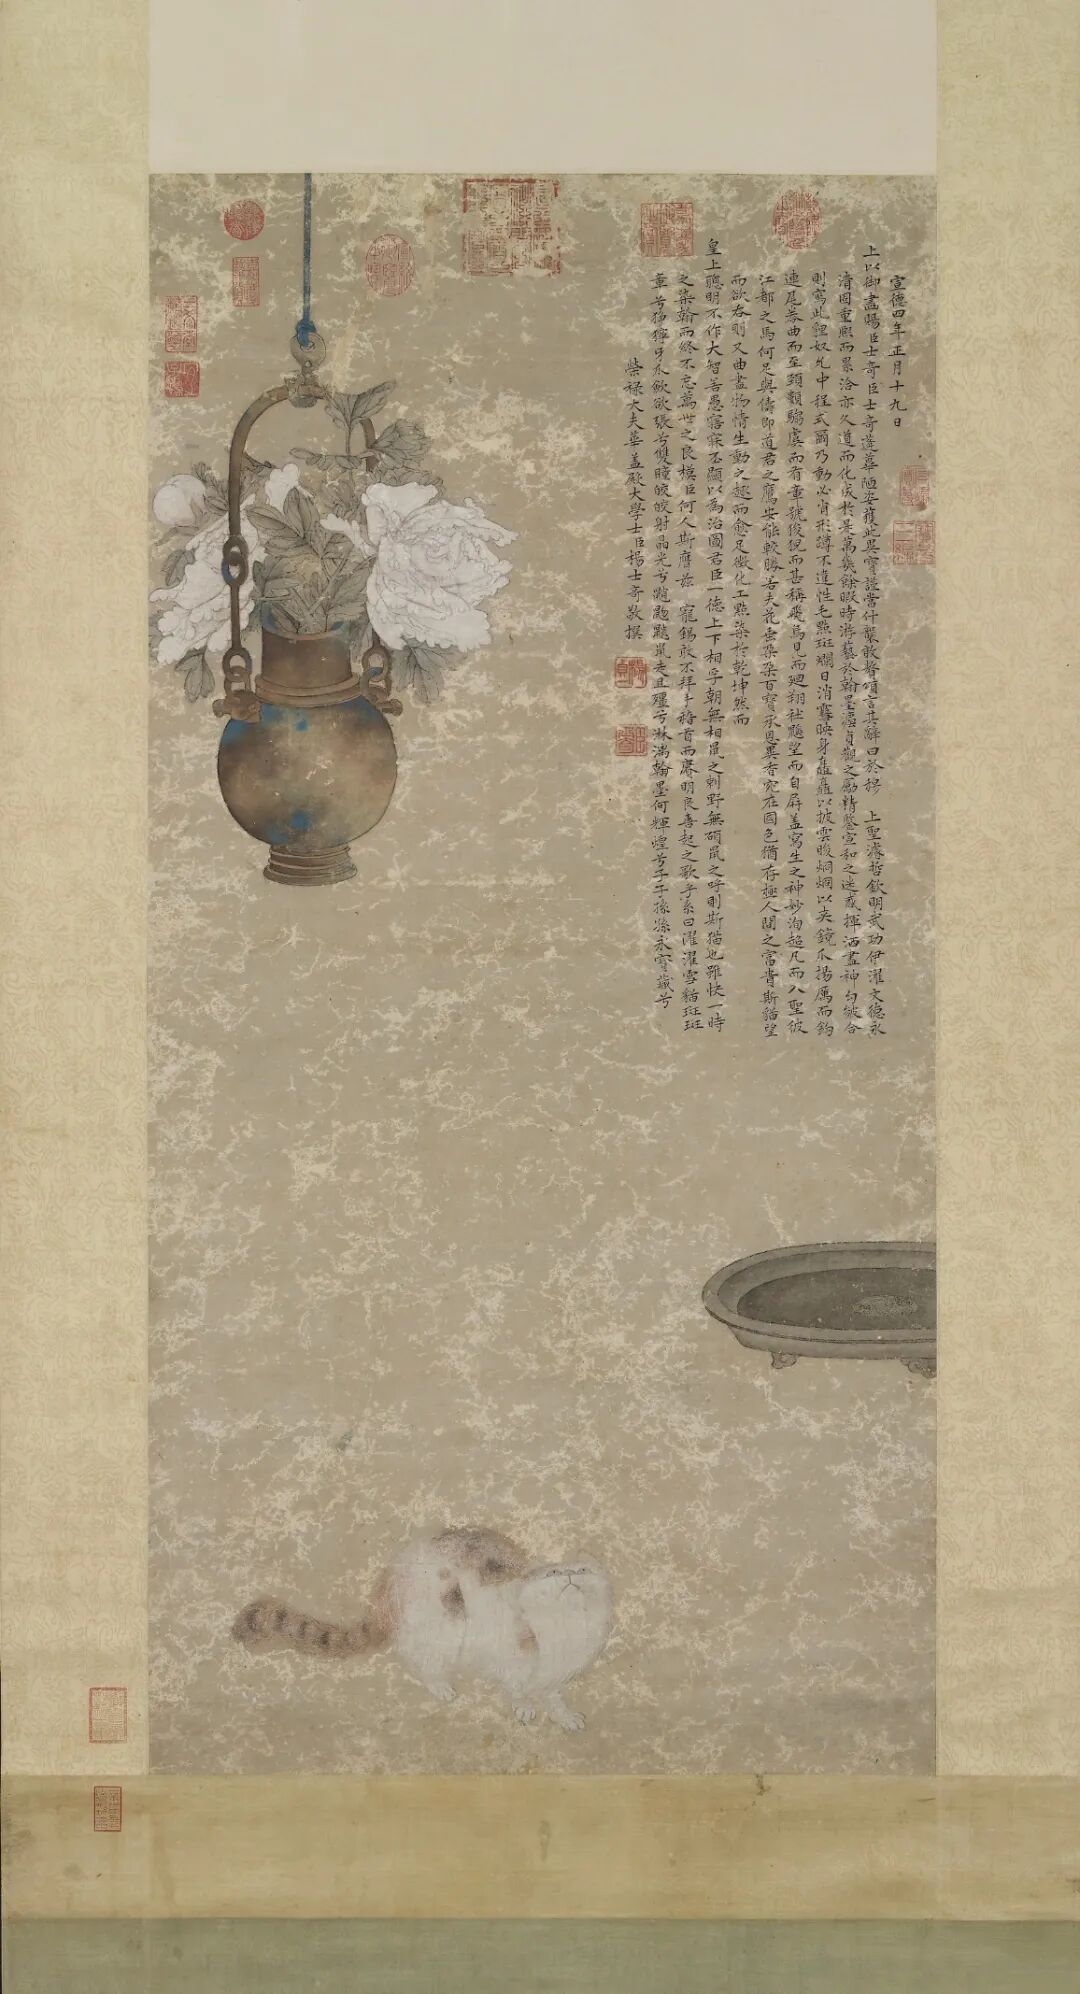 宣德四年正月十九日
上以御畫賜臣士奇臣士奇蓬蓽陋姿獲此異寶謹當什襲敢贅頌言其辭曰於穆　上聖濬哲欽明武功伊濯文德永
清固重熙而累洽亦久道而化成於是萬幾餘暇時游藝於翰墨邁貞觀之勵精鑒宣和之迷惑揮洒盡神勾皴合
則寫此貍奴允中程式爾乃動必肖形蹲不違性毛點斑斕日消霧映身矗矗以披雲眼炯炯以夾鏡爪揚厲而鈎
連尾拳曲而至頸類騶虞而有章號狻猊而甚稱飛鳥見而迴翔社鼷望而自屏蓋寫生之神妙洵超凡而入聖彼
江都之馬何足與儔即道君之鷹安能較勝若夫花雲朵朵百寶承恩異香宛在國色猶存極人間之富貴斯貓望
而欲吞則又曲盡物情生動之趣而愈足徵化工點染於乾坤然而
皇上聰明不作大智若愚寤寐丕顯以為治圖君臣一德上下相孚朝無相鼠之刺野無碩鼠之呼則斯貓也雖快一時
之染翰而終不忘萬世之良模臣何人斯膺茲　寵錫敢不拜手稽首而賡明良喜起之歌乎系曰濯濯雪貓斑斑
章兮猙獰牙爪欲張兮雙瞳皎皎射晶光兮鼫鼠走且殭兮淋漓翰墨何輝煌兮子子孫孫永寶藏兮
榮祿大夫華蓋殿大學士臣楊士奇敬撰